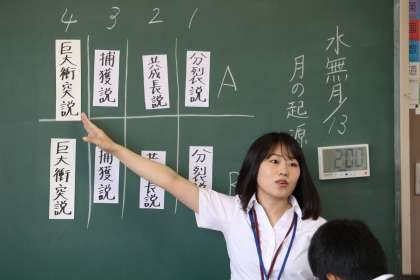 水無月/13
月の起源
1
2
3
4
A
分裂説
共成長説
捕獲説
巨大衝突説
分裂説
共成長説
捕獲説
巨大衝突説
2:00